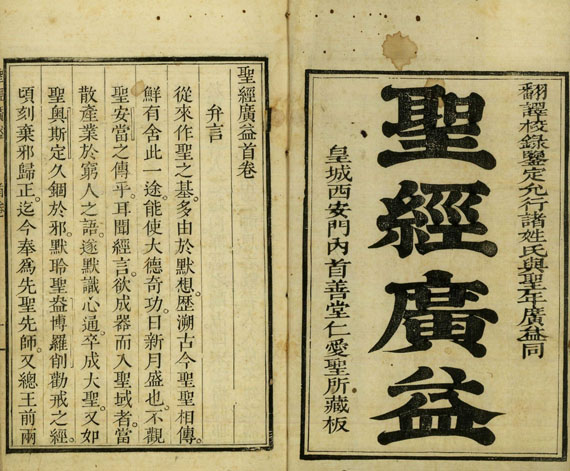 翻譯校錄鑒定允行諸姓氏與聖年廣益同
聖經廣益
皇城西安門內首善堂仁愛聖所藏板
聖經廣益首卷
弁言
從來作聖之基。多由於默想。歷溯古今聖聖相傳。
鮮有舍此一途。能使大德奇功。日新月盛也。不觀
聖安當之傳乎。耳聞經言。欲成器而入聖域者。當
散產業於窮人之語。遂默識心通。卒成大聖。又如
聖奧斯定久錮於邪。默聆聖葢博羅削勸戒之經。
頃刻棄邪歸正。迄今奉爲先聖先師。又總王前兩